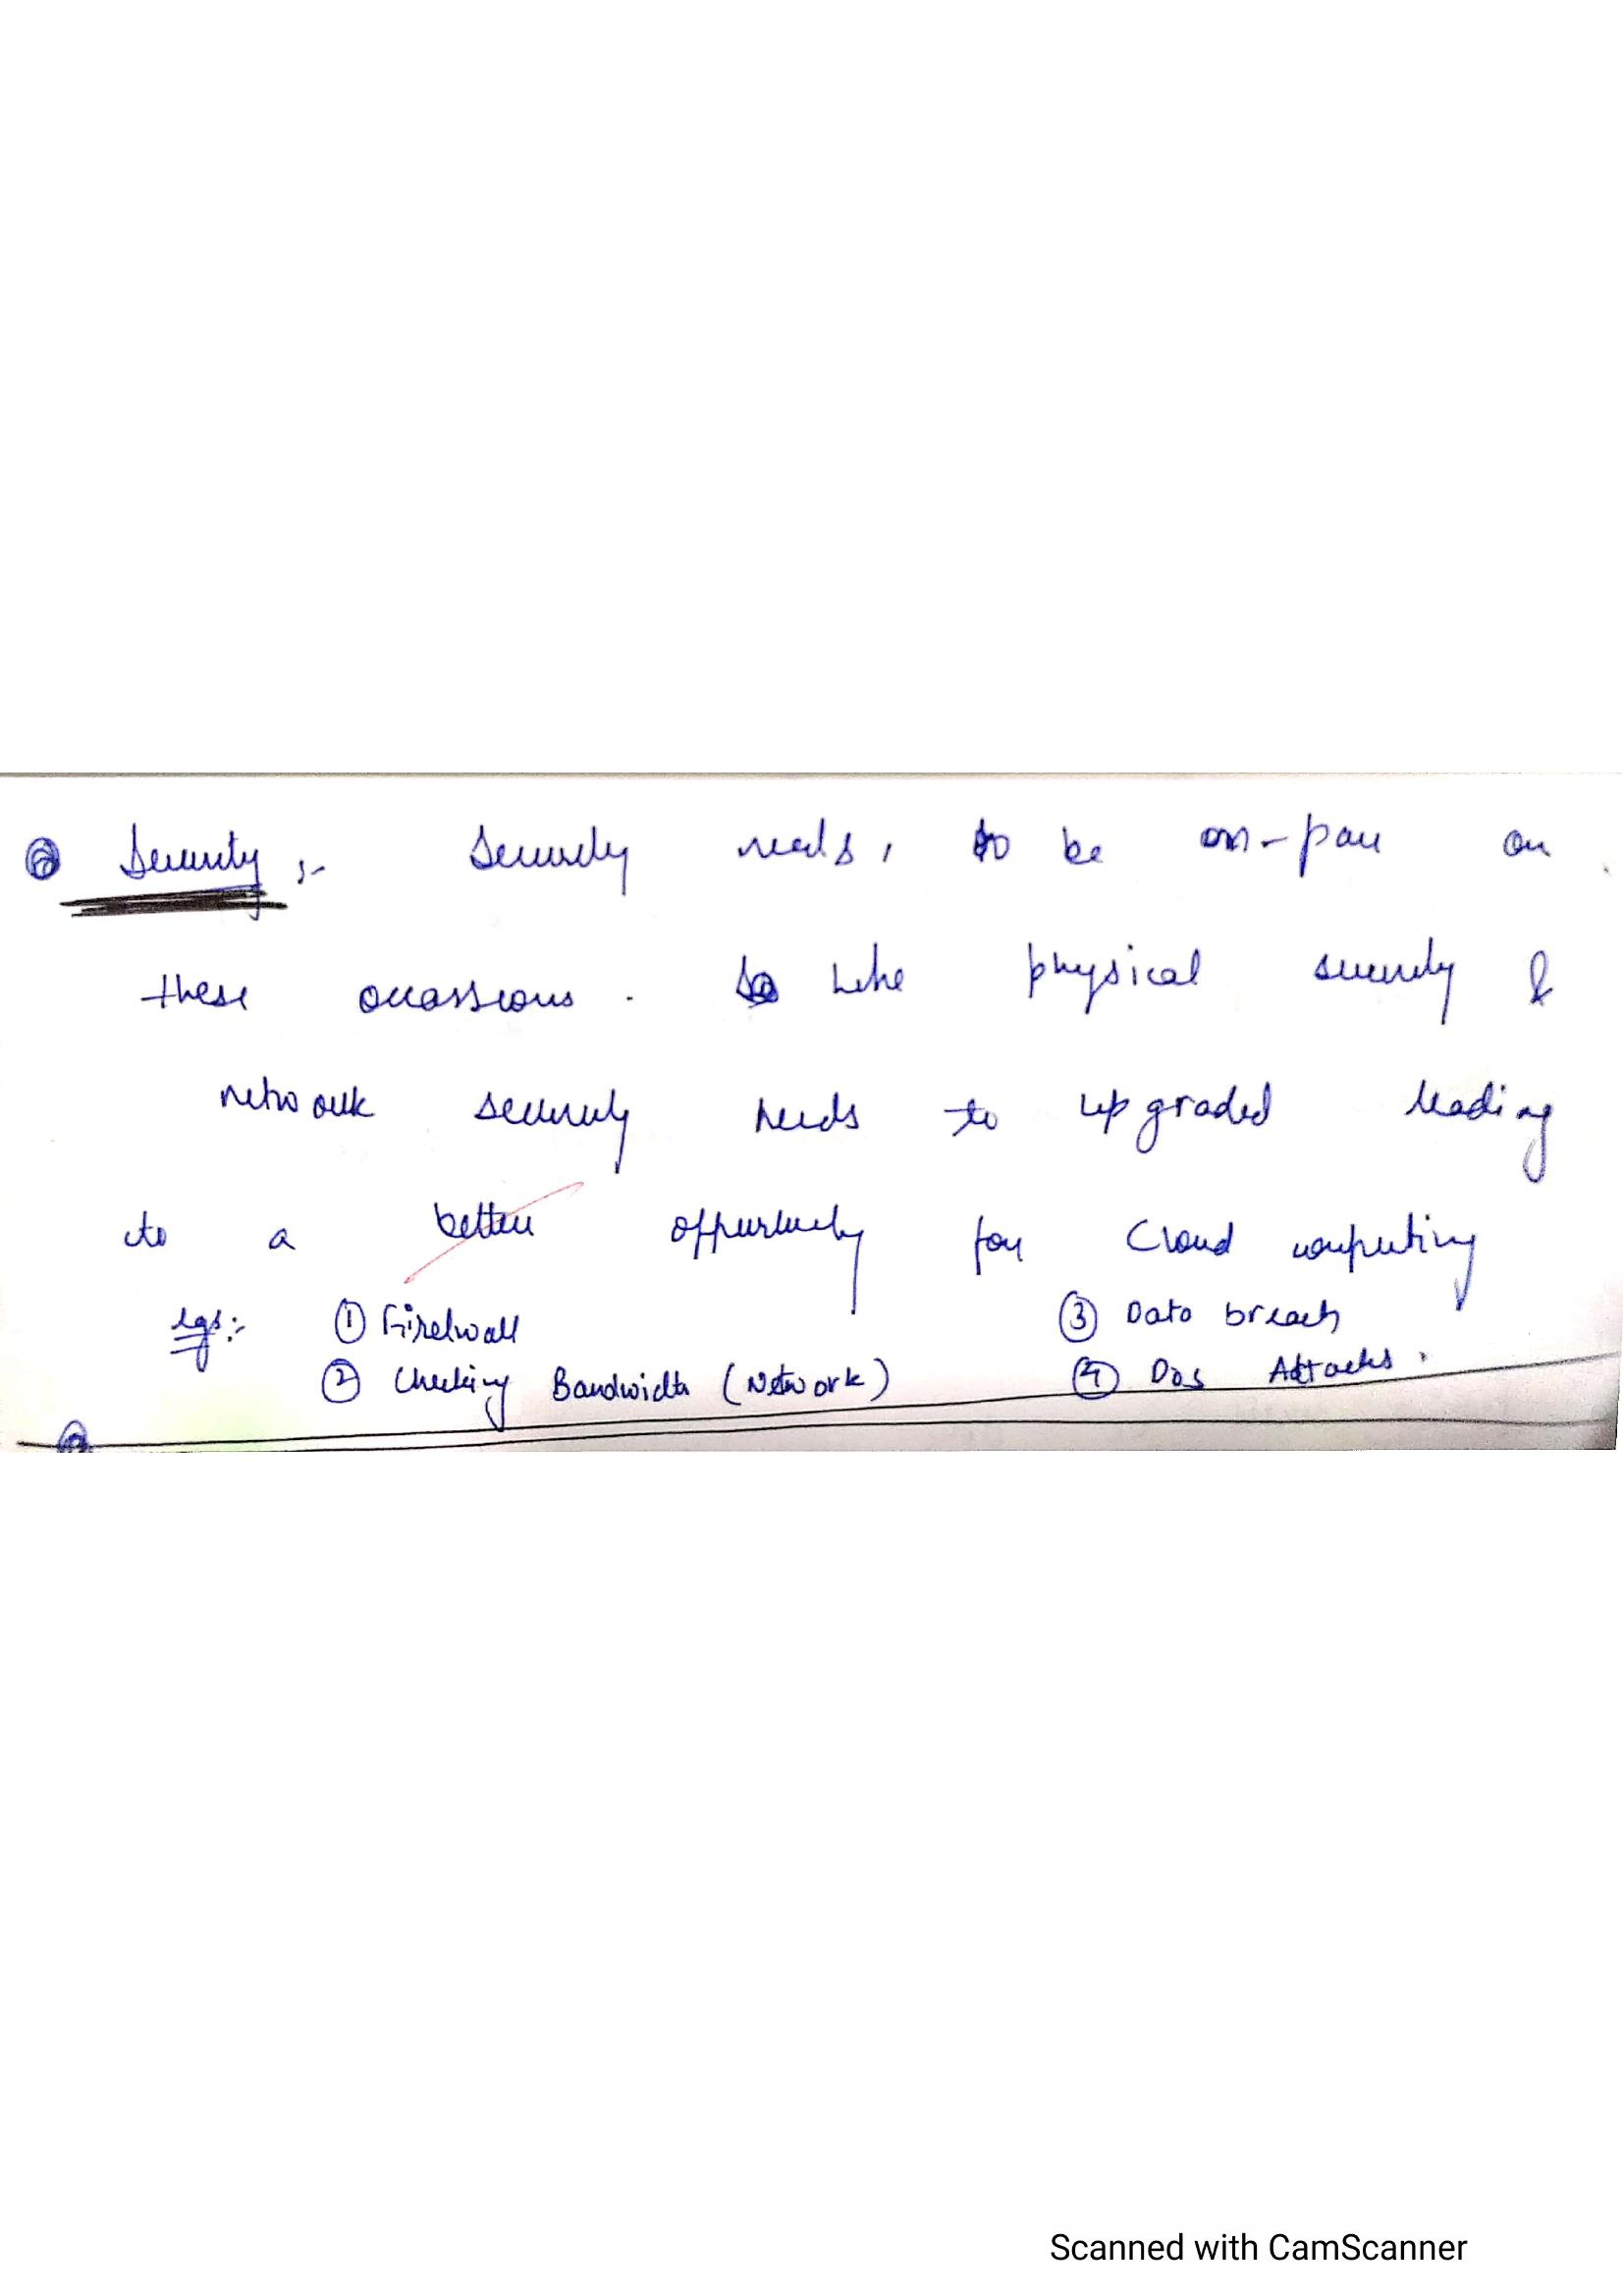 Security :- Security needs, to be on-par on
these occassions. Like physical security &
network security needs to upgraded leading
to a better oppurtunity for Cloud computing
egs:- ① Firewall ③ Data breach
② Checking Bandwidth (Network) ④ Dos Attacks.
Scanned with CamScanner